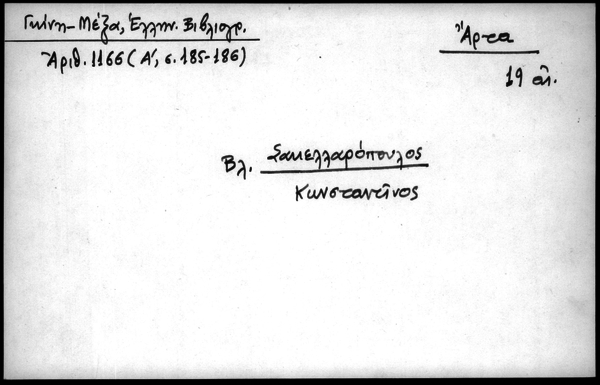 Γκίνη-Μέξα, Ἑλλην. Βιβλιογρ.
Ἀριθ. 1166 (Α', σ. 185-186)
Ἄρτα
19 αἰ.
Βλ. Σακελλαρόπουλος
Κωνσταντῖνος